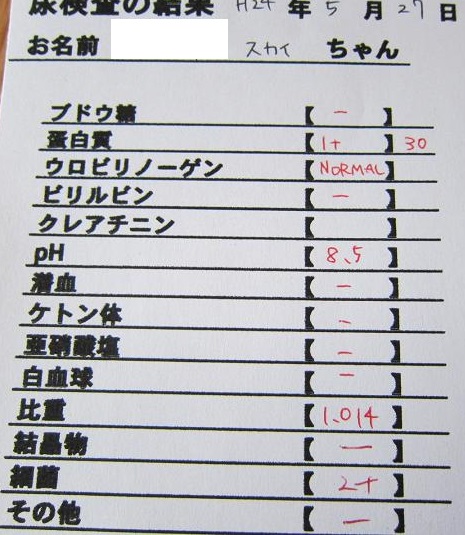 尿検査の結果 H24 年 5 月 27 日
お名前 スカイ ちゃん
ブドウ糖 【 - 】
蛋白質 【 1+ 】 30
ウロビリノーゲン 【 NORMAL 】
ビリルビン 【 - 】
クレアチニン 【 】
pH 【 8.5 】
潜血 【 - 】
ケトン体 【 - 】
亜硝酸塩 【 - 】
白血球 【 - 】
比重 【 1.014 】
結晶物 【 - 】
細菌 【 2+ 】
その他 【 - 】